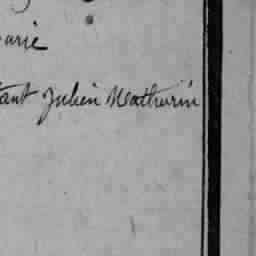 arie
tant Julien Mathurin